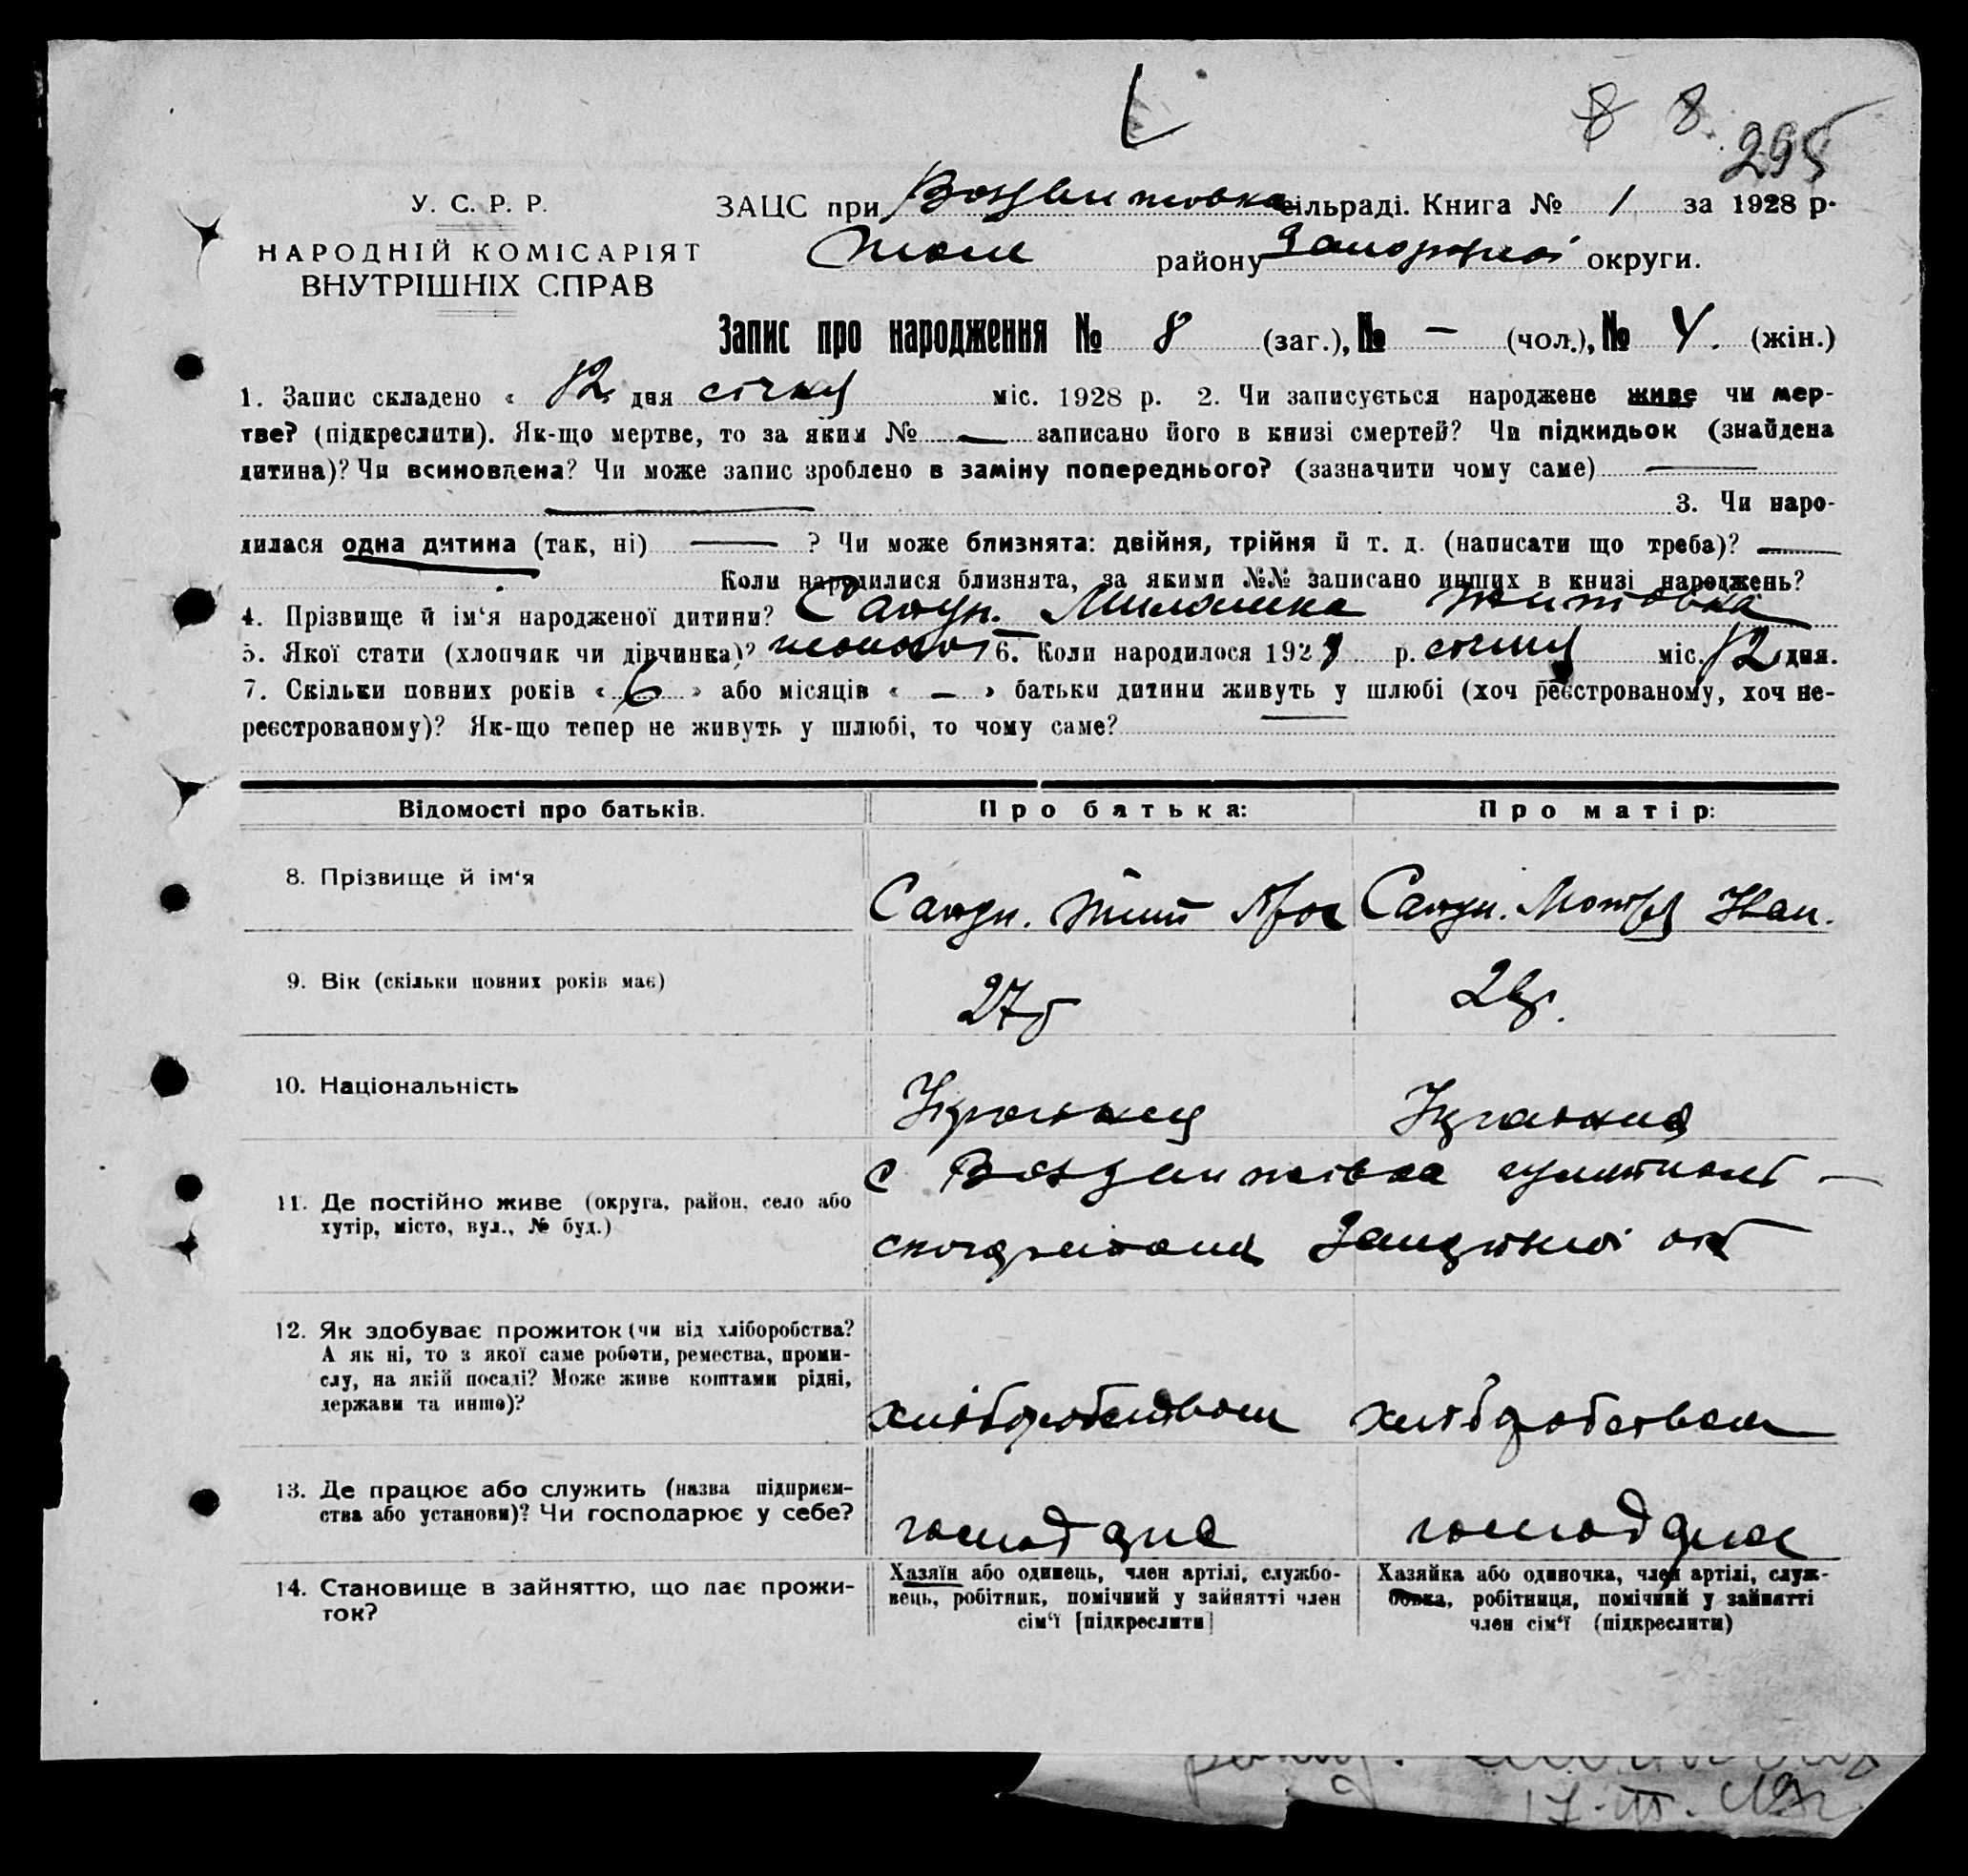 8 8.
295
У. С. Р. Р.
НАРОДНІЙ КОМІСАРІЯТ
ВНУТРІШНІХ СПРАВ
ЗАЦС при Воздвижовка сільраді. Книга № 1 за 1928 р.
району округи.
Запис про народження № 8 (заг.), № — (чол.), № 4. (жін.)
1. Запис складено « 12 дня січня міс. 1928 р. 2. Чи записується народжене живе чи мер-
тве? (підкреслити). Як-що мертве, то за яким № — записано його в книзі смертей? Чи підкидьок (знайдена
дитина)? Чи всиновлена? Чи може запис зроблено в заміну попереднього? (зазначити чому саме) —
— 3. Чи наро-
дилася одна дитина (так, ні) — ? Чи може близнята: двійня, трійня й т. д. (написати що треба)? —
Коли народилися близнята, за якими №№ записано инших в книзі народжень?
4. Прізвище й ім‘я народженої дитини? Титовна
5. Якої стати (хлопчик чи дівчинка)? 6. Коли народилося 1928 р. січня міс. 12 дня.
7. Скільки повних років « 6 » або місяців « — » батьки дитини живуть у шлюбі (хоч реєстрованому, хоч не-
реєстрованому)? Як-що тепер не живуть у шлюбі, то чому саме? —
Відомості про батьків. Про батька: Про матір:
8. Прізвище й ім‘я Тит Мотря Иван.
9. Вік (скільки повних років має) 27
10. Національність Українец Українка
11. Де постійно живе (округа, район, село або с Воздвижівка
хутір, місто, вул., № буд.)
12. Як здобуває прожиток (чи від хліборобства?
А як ні, то з якої саме роботи, ремества, проми-
слу, на якій посаді? Може живе коштами рідні,
держави та инше)? хліборобством хліборобством
13. Де працює або служить (назва підприєм-
ства або установи)? Чи господарює у себе?
14. Становище в зайняттю, що дає прожи-
ток?
Хазяїн або одинець, член артілі, службо-
вець, робітник, помічний у зайнятті член
сім‘ї [підкреслити]
Хазяйка або одиночка, член артілі, служ-
бовка, робітниця, помічний у зайнятті
член сім‘ї (підкреслити)